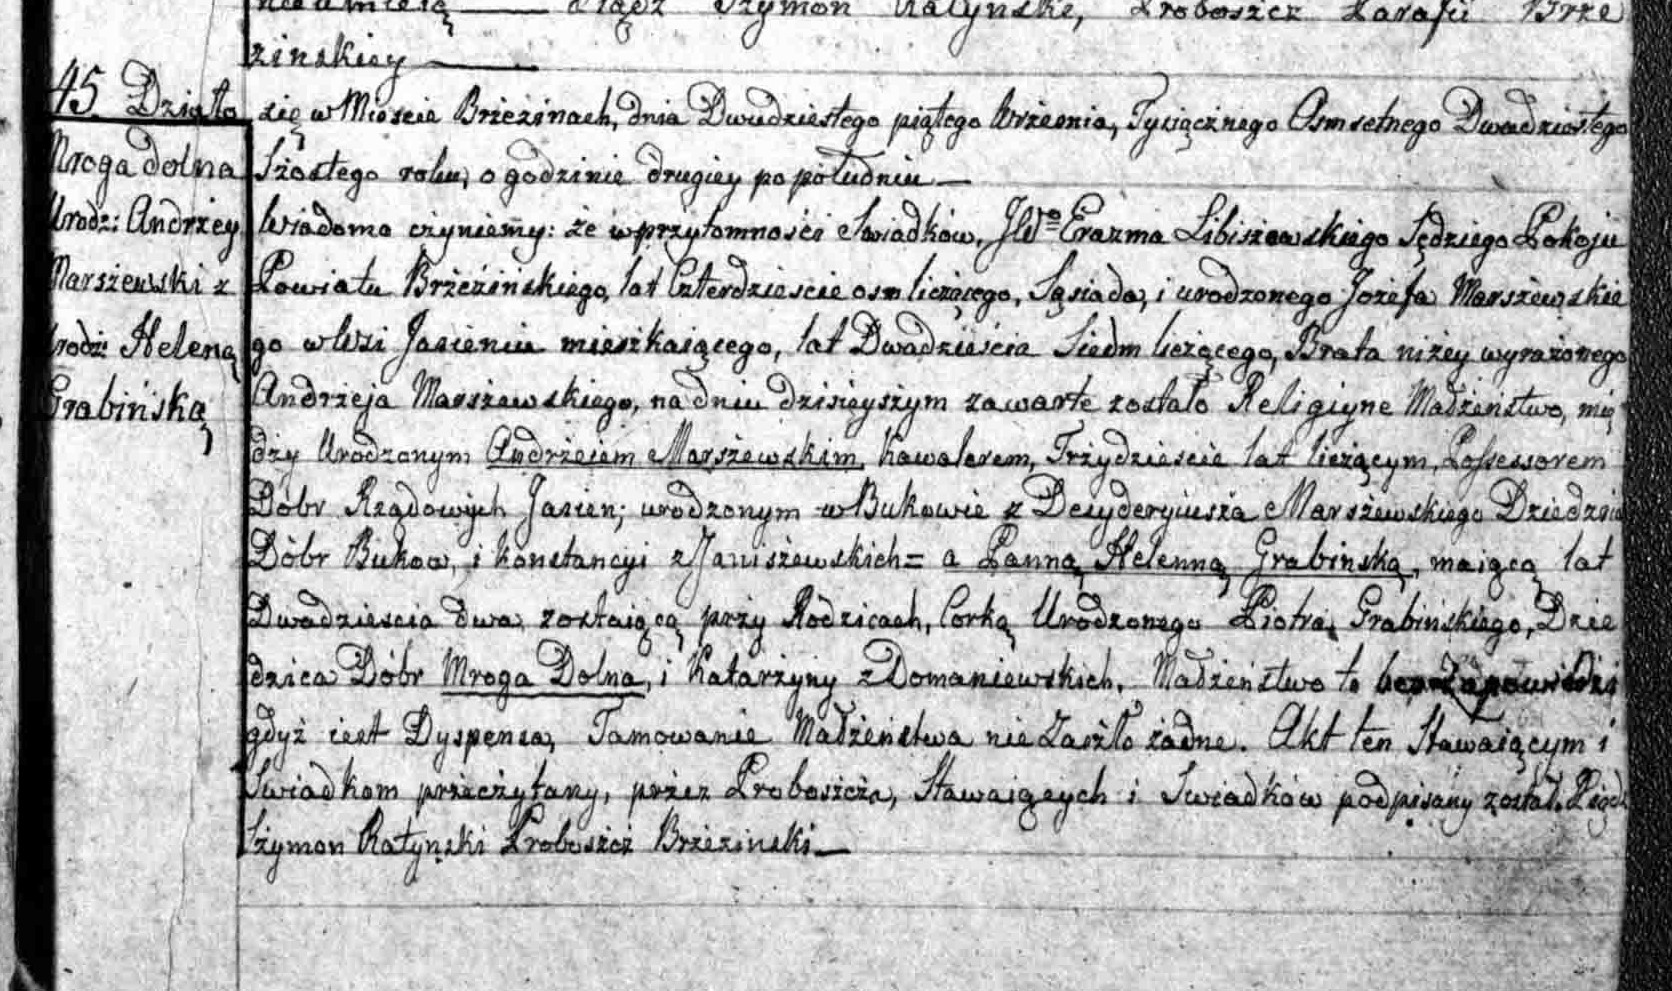 Szymon Ratynski, Proboszcz Parafii Brze
zinskiey
45. Działo się w Mieście Brzezinach, dnia Dwudziestego piątego Września, Tysiącznego Osmsetnego Dwudziestego
Mroga dolna
Szostego roku, o godzinie drugiey po południu —
Urodz: Andrzey
Wiadomo czyniemy: że w przytomności Swiadków, JWo Erazma Libiszewskiego Sędziego Pokoju
Marszewski z
Powiatu Brzezińskiego, lat Czterdzieście osm liczącego, Sąsiada, i urodzonego Jozefa Marszewskie
Urodz: Heleną
go w Wsi Jasieniu mieszkaiącego, lat Dwadzieścia Siedm liczącego, Brata niżey wyrażonego
Grabińską
Andrzeja Marszewskiego, na dniu dzisieyszym zawarte zostało Religiyne Małżeństwo, mię
dzy Urodzonym Andrzeiem Marszewskim, Kawalerem, Trzydzieście lat liczącym, Possessorem
Dóbr Rządowych Jasien; urodzonym w Bukowie z Dezyderyusza Marszewskiego Dziedzica
Dóbr Bukow, i Konstancyi z Janiszewskich = a Panną Helenną Grabińską, maiącą lat
Dwadzieścia dwa, zostaiącą przy Rodzicach, Corką Urodzonego Piotra Grabińskiego, Dzie
dzica Dóbr Mroga Dolna, i Katarzyny z Domaniewskich. Małżeństwo to bez zapowiedzi
gdyż iest Dyspensa, Tamowanie Małżeństwa nie Zaszło żadne. Akt ten Stawaiącym i
Swiadkom przeczytany, przez Proboszcza, Stawaiących i Swiadków podpisany został. Xiądz
Szymon Ratynski Proboszcz Brzezinski —